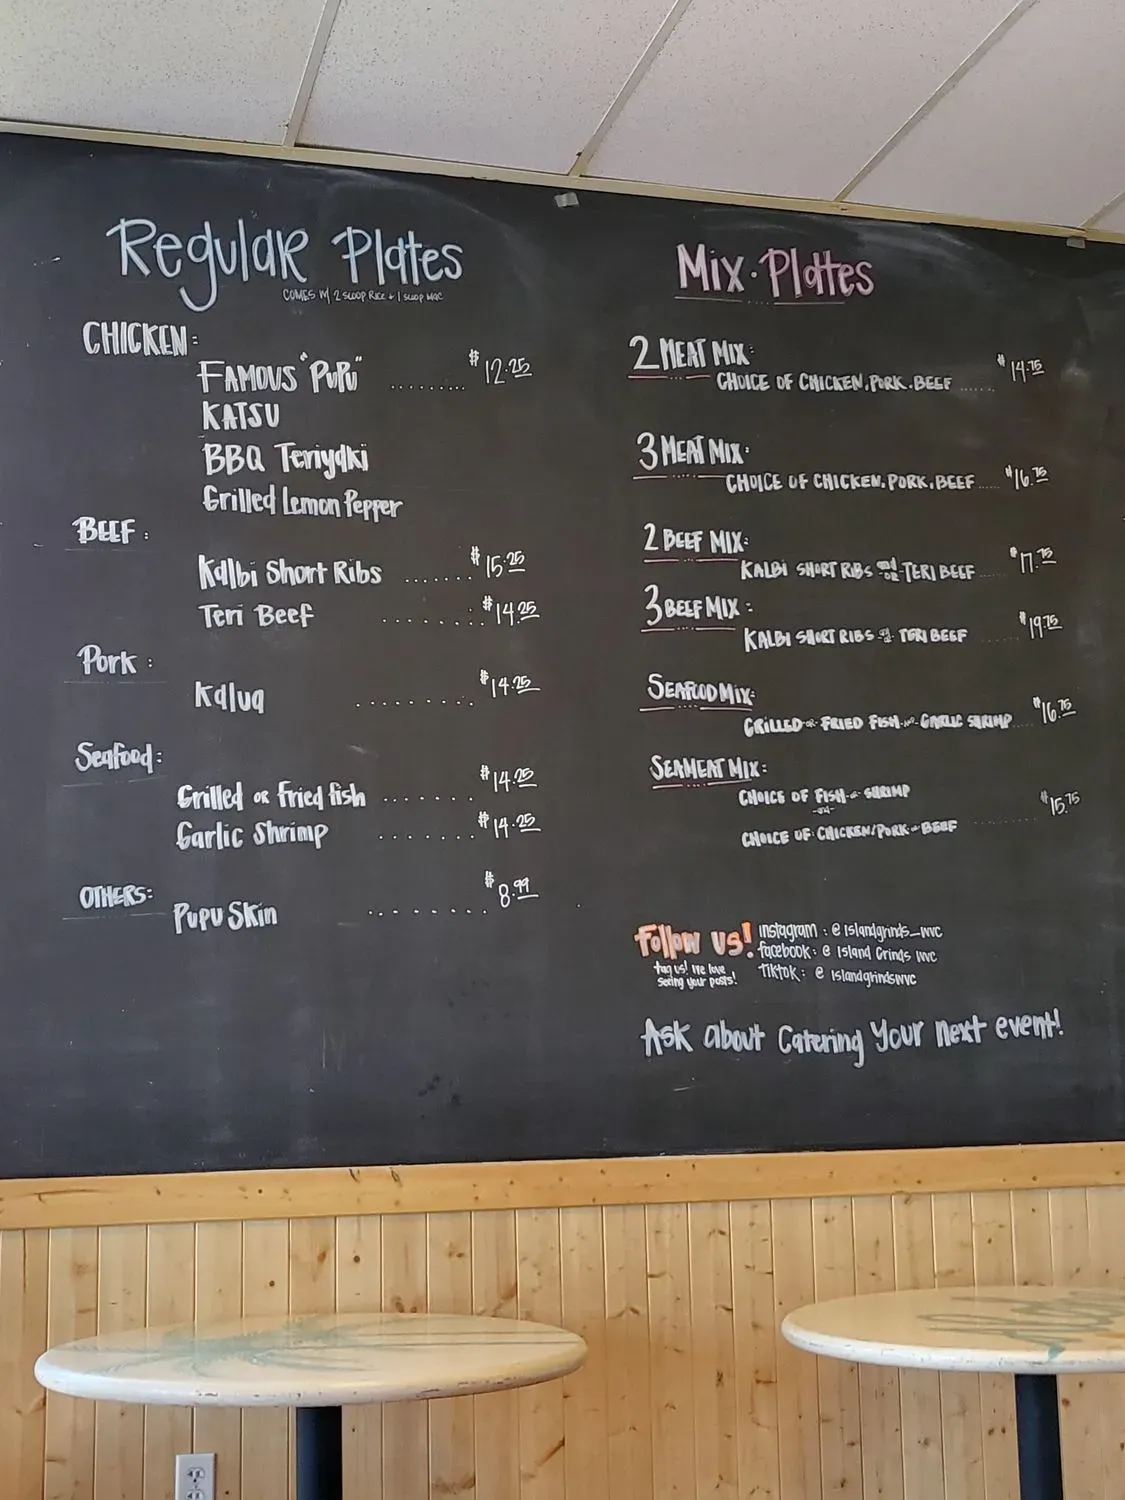 Regular Plates
COMES W/ 2 SCOOP RICE + 1 SCOOP MAC
CHICKEN:
FAMOUS "PUPU" ......... $12.25
KATSU
BBQ Teriyaki
Grilled Lemon Pepper
BEEF :
Kalbi Short Ribs ....... $15.25
Teri Beef ........ $14.25
Pork :
Kalua ........ $14.25
Seafood:
Grilled or Fried fish ....... $14.25
Garlic Shrimp ....... $14.25
OTHERS:
Pupu Skin ........ $8.99
Mix Plates
2 MEAT MIX:
CHOICE OF CHICKEN, PORK, BEEF ...... $14.75
3 MEAT MIX:
CHOICE OF CHICKEN, PORK, BEEF ..... $16.75
2 BEEF MIX:
KALBI SHORT RIBS and/or TERI BEEF ..... $17.75
3 BEEF MIX :
KALBI SHORT RIBS TERI BEEF ...... $19.75
SEAFOOD MIX:
GRILLED or FRIED FISH GARLIC SHRIMP .... $16.75
SEAMEAT MIX:
CHOICE OF FISH or SHRIMP
-and-
CHOICE OF CHICKEN/PORK BEEF .......... $15.75
Follow us!
tag us! We love
seeing your posts!
instagram : @ islandgrinds_wvc
facebook : @ Island Grinds wvc
Tiktok : @ islandgrindswvc
Ask about Catering Your next event!